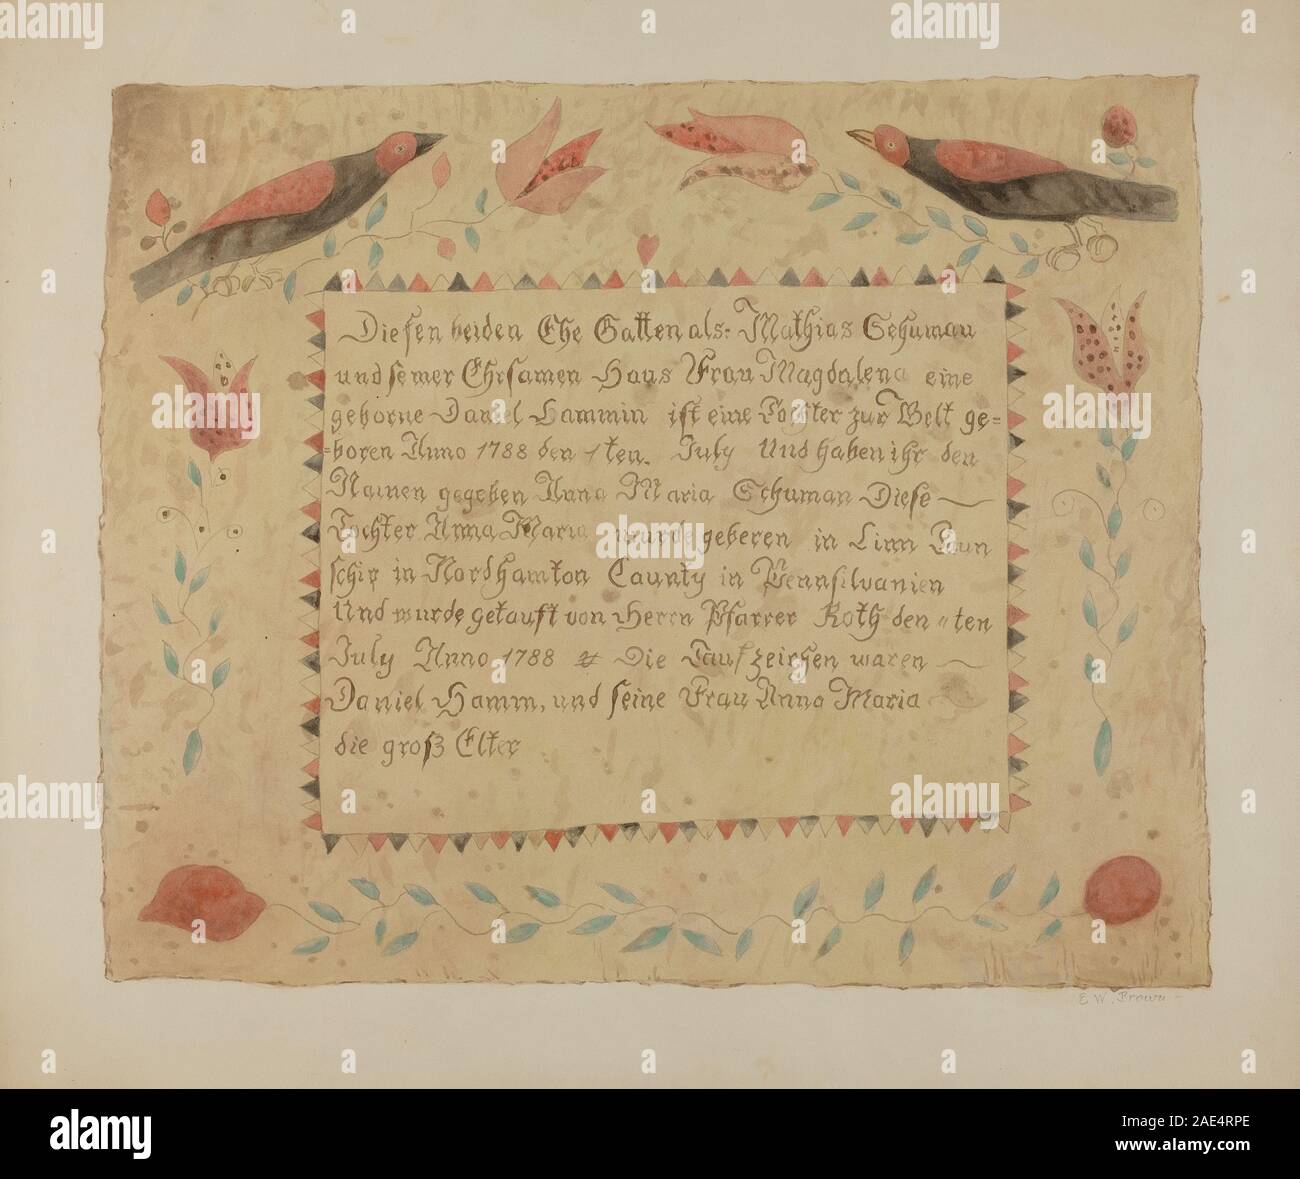 Diesen beiden Ehe Gatten als: Mathias Schuman
und seiner Ehrsamen Haus Frau Magdalena eine
geborne Daniel Hammin ist eine Tochter zur Welt ge=
=boren Anno 1788 den 1ten. July Und haben ihr den
Namen gegeben Anna Maria Schuman Diese —
Tochter Anna Maria wurde geberen in Linn Taun
schip in Nordhamton Caunty in Pennsilvanien
Und wurde getauft von Herrn Pfarrer Roth den " ten
July Anno 1788 Die Taufzeichen waren —
Daniel Hamm, und seine Frau Anna Maria
die groß Elter
E. W. Brown
alamy
Image ID: 2AE4RPE
www.alamy.com